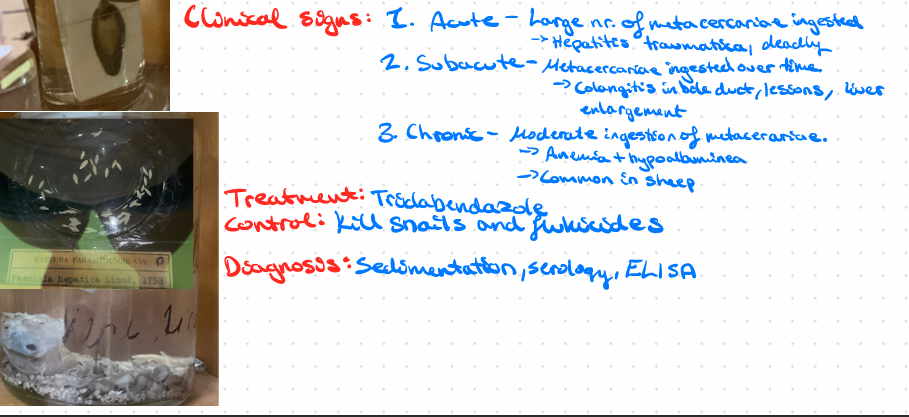 Clinical signs: 1. Acute - Large nr. of metacercariae ingested
-> Hepatites traumatica, deadly
2. Subacute - Metacercariae ingested over time.
-> Colangitis in bile duct, lessons, liver
enlargement
3. Chronic - Moderate ingestion of metacerariae.
-> Anemia + hypoalbuminea
-> Common in sheep
Treatment: Triclabendazole
Control: Kill snails and flukicides
Diagnosis: Sedimentation, serology, ELISA
KATEDRA PARAZITOLOGIE VŠV
Fasciola hepatica Linné, 1758